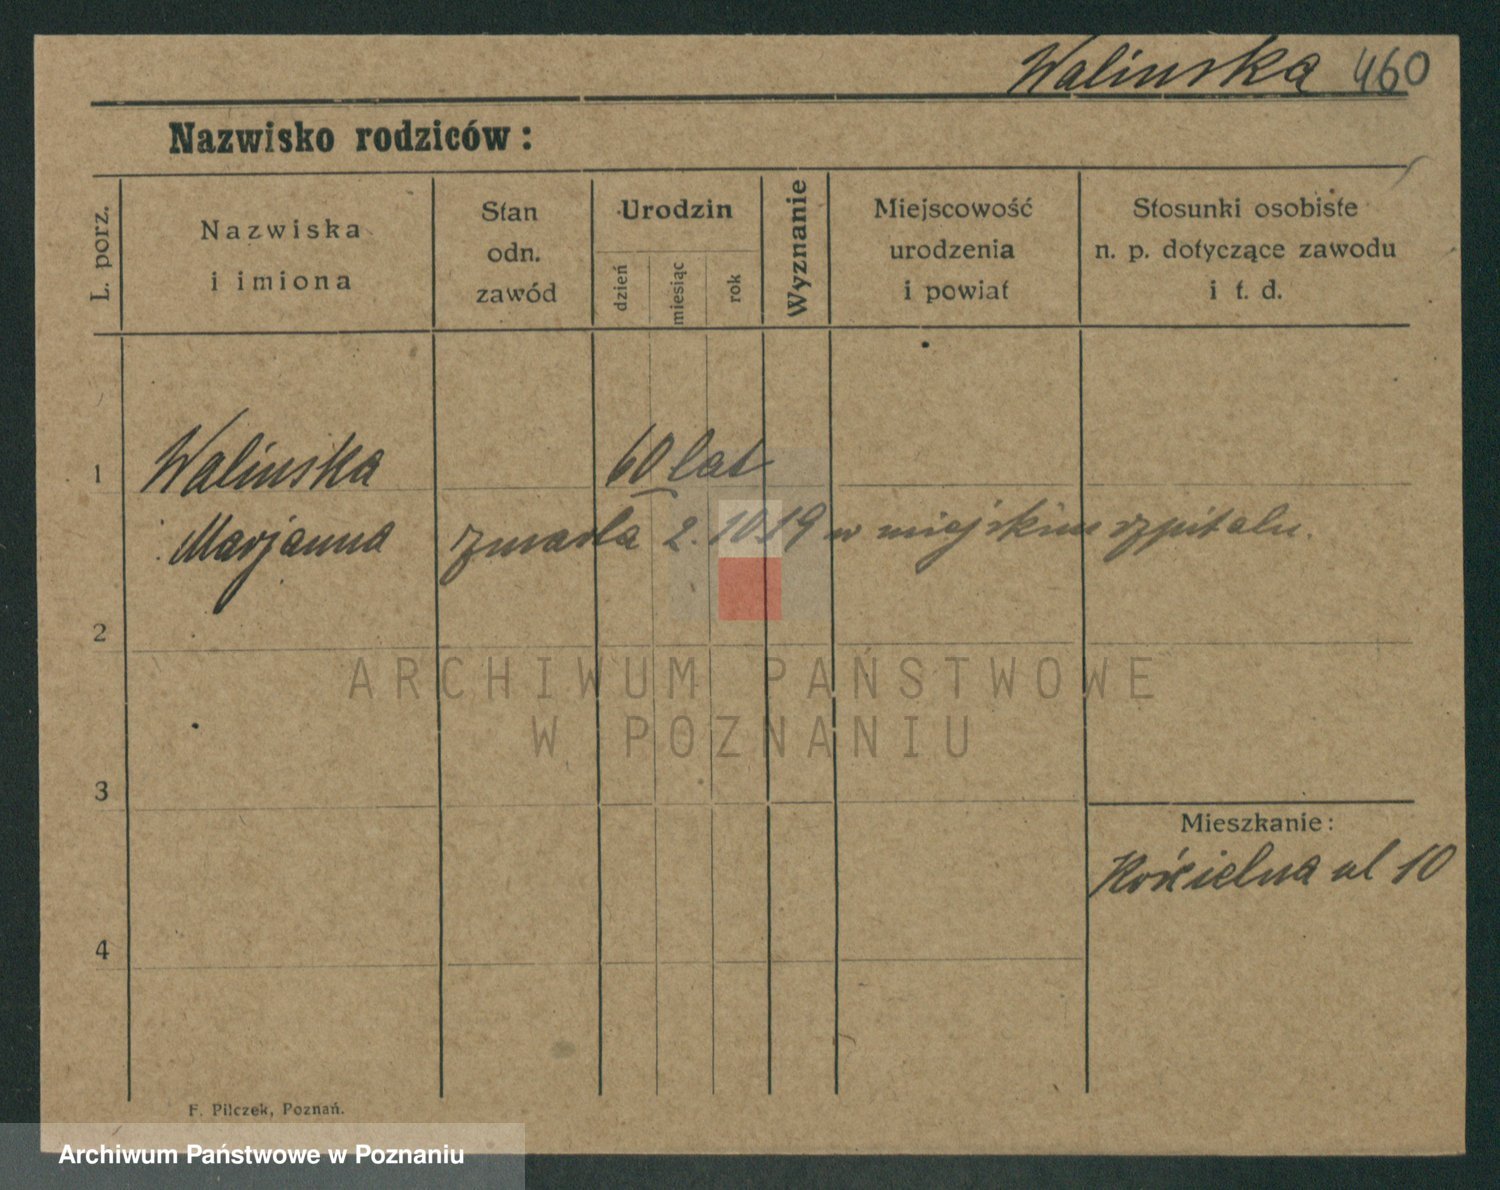 Walinska 460
Nazwisko rodziców:
L. porz.
Nazwiska
i imiona
Stan
odn.
zawód
Urodzin
dzień
miesiąc
rok
Wyznanie
Miejscowość
urodzenia
i powiat
Stosunki osobiste
n. p. dotyczące zawodu
i t. d.
1 Walinska 60 lat
Marjanna zmarła 2.10.19 w miejskim szpitalu.
2
ARCHIWUM PAŃSTWOWE
W POZNANIU
3
Mieszkanie:
Kościelna ul 10
4
F. Pilczek, Poznań.
Archiwum Państwowe w Poznaniu